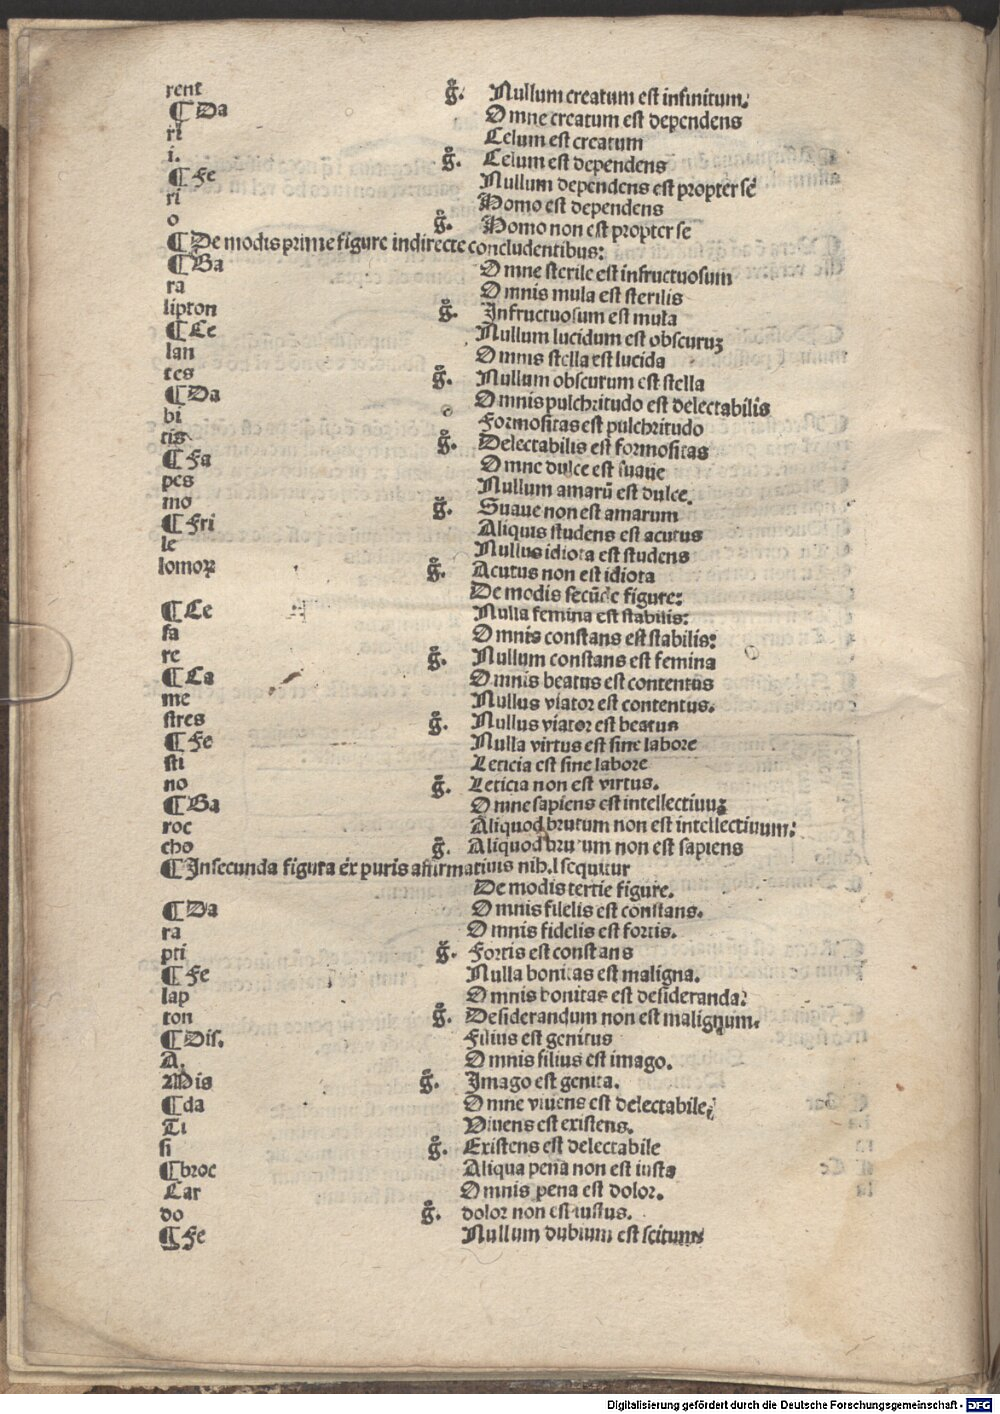 rent g̊. Nullum creatum est infinitum.
¶ Da Omne creatum est dependens
ri Celum est creatum
i. g̊. Celum est dependens
¶ Fe Nullum dependens est propter se
ri Homo est dependens
o g̊. Homo non est propter se
¶ De modis prime figure indirecte concludentibus:
¶ Ba Omne sterile est infructuosum
ra Omnis mula est sterilis
lipton g̊. Infructuosum est mula
¶ Ce Nullum lucidum est obscuruꝫ
lan Omnis stella est lucida
tes g̊. Nullum obscurum est stella
¶ Da Omnis pulchritudo est delectabilis
bi Formositas est pulchritudo
tis g̊. Delectabilis est formositas
¶ Fa Omne dulce est suaue
pes Nullum amarū est dulce.
mo g̊. Suaue non est amarum
¶ Fri Aliquis studens est acutus
se Nullus idiota est studens
somoꝝ g̊. Acutus non est idiota
De modis secūde figure:
¶ Ce Nulla femina est stabilis:
sa Omnis constans est stabilis:
re g̊. Nullum constans est femina
¶ Ca Omnis beatus est contentus
me Nullus viator est contentus.
stres g̊. Nullus viator est beatus
¶ Fe Nulla virtus est sine labore
sti Leticia est sine labore
no g̊. Leticia non est virtus.
¶ Ba Omne sapiens est intellectiuuꝫ
roc Aliquod brutum non est intellectiuum:
cho g. Aliquod brutum non est sapiens
¶ In secunda figura ex puris affirmatiuis nihil sequitur
De modis tertie figure.
¶ Da Omnis filelis est constans.
ra Omnis fidelis est fortis.
pti g̊. Fortis est constans
¶ Fe Nulla bonitas est maligna.
lap Omnis bonitas est desideranda:
ton g̊. Desiderandum non est malignum.
¶ Dis. Filius est genitus
A. Omnis filius est imago.
Mis g̊. Imago est genita.
¶ da Omne viuens est delectabile:
Ti Viuens est existens.
si g̊. Existens est delectabile
¶ broc Aliqua pena non est iusta
Car Omnis pena est dolor.
do g̊. dolor non est iustus.
¶ Fe Nullum dubium est scitum
Digitalisierung gefördert durch die Deutsche Forschungsgemeinschaft - DFG